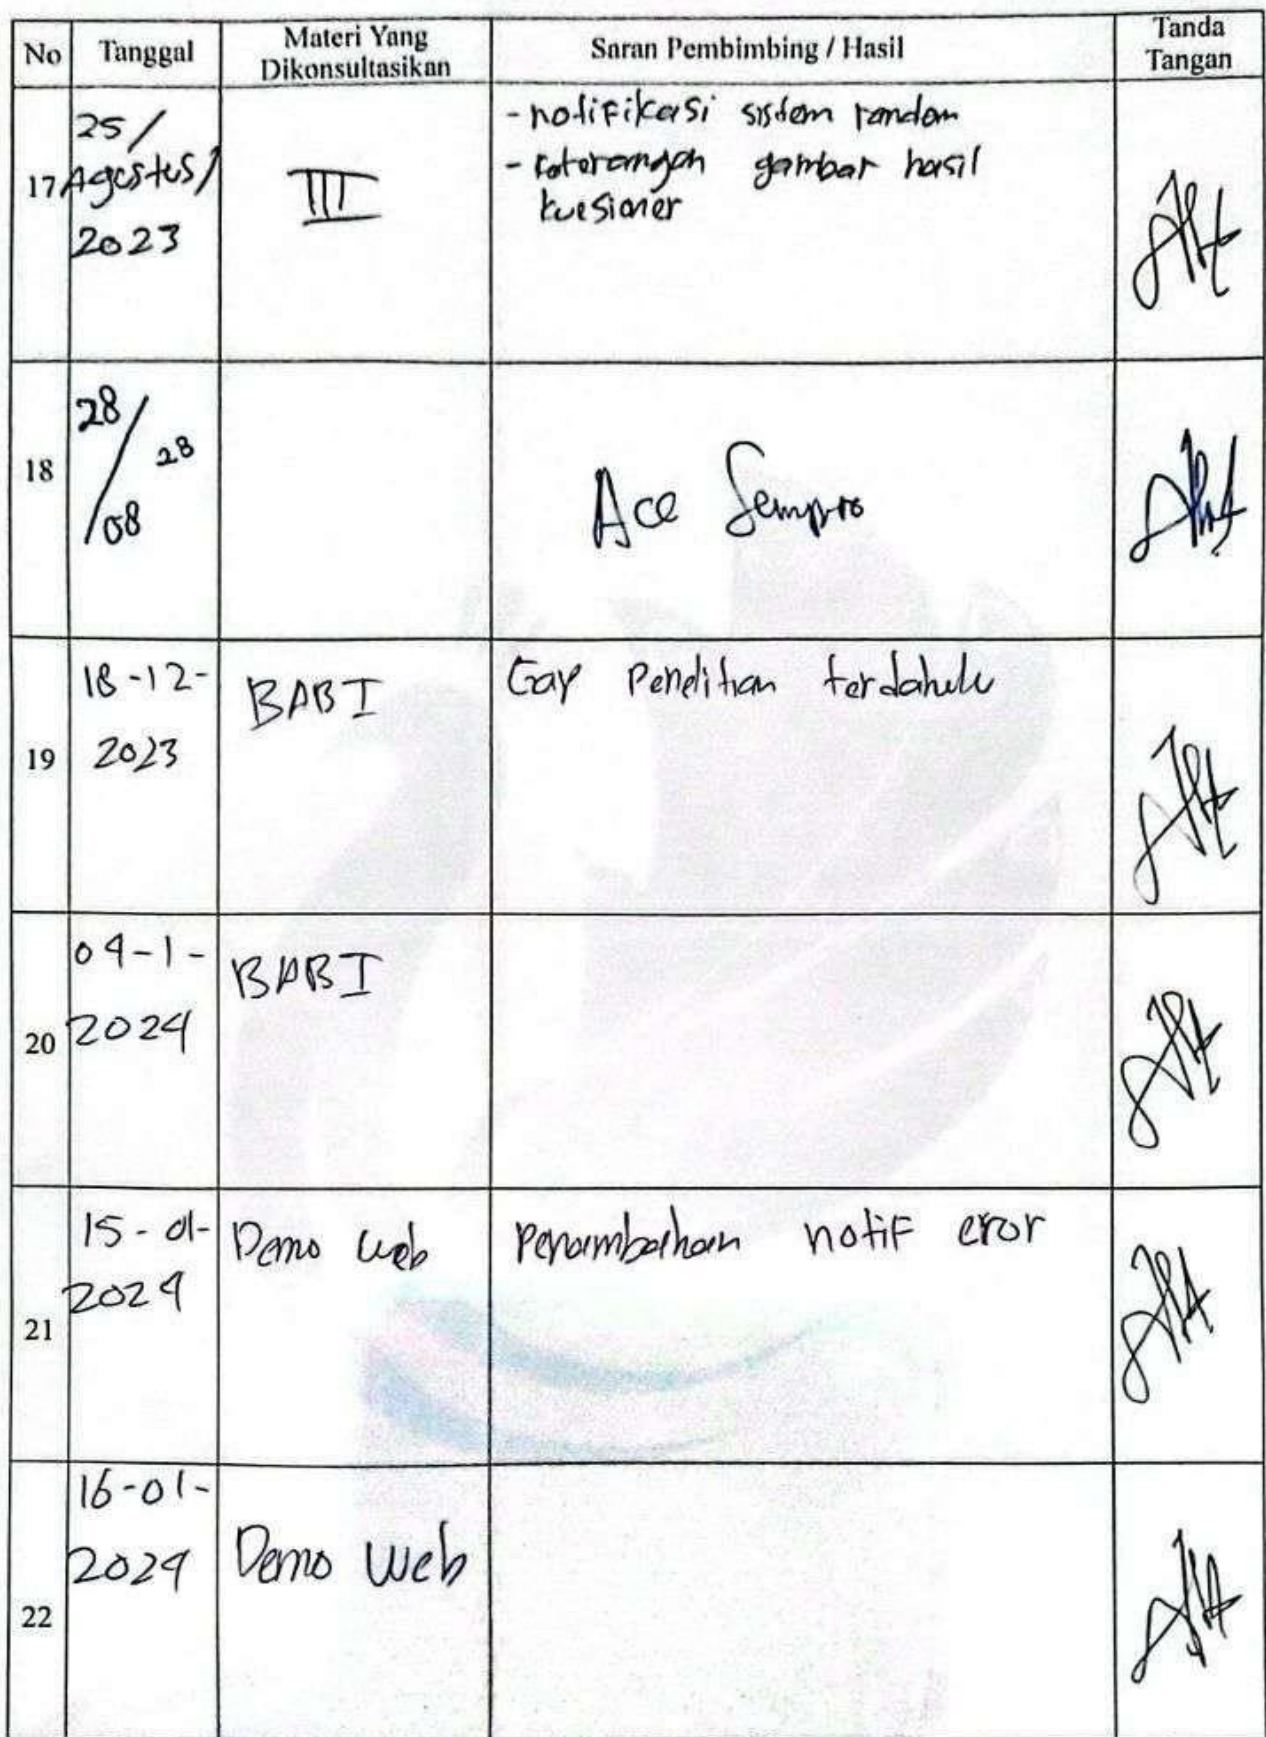 No Tanggal Materi Yang Dikonsultasikan Saran Pembimbing / Hasil Tanda Tangan
17 25/ Agustus/ 2023 III - notifikasi sistem random
- keterangan gambar hasil
kuesioner
18 28/08 28 Acc Sempro
19 18-12- 2023 BAB I Gap Penelitian terdahulu
20 04-1- 2024 BAB I
21 15-01- 2024 Demo web Penambahan notif eror
22 16-01- 2024 Demo Web